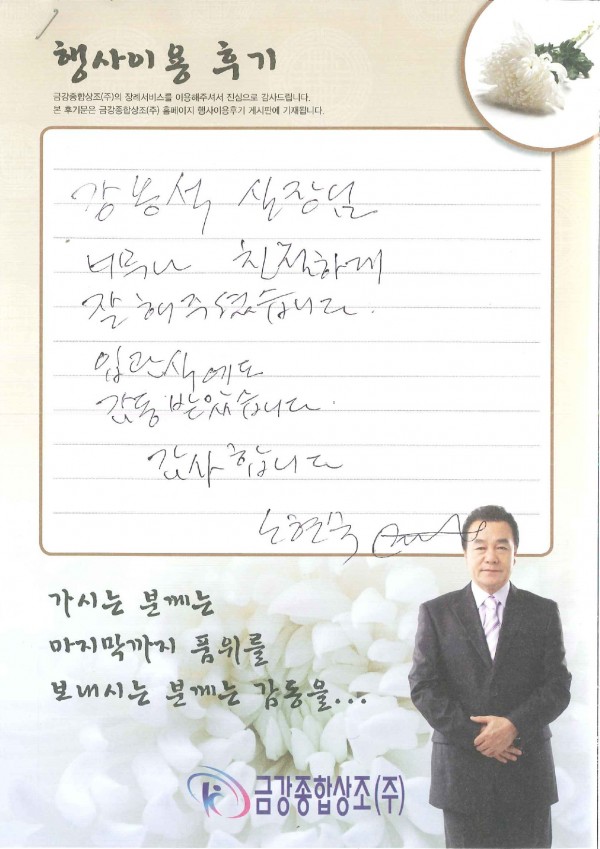 행사이용 후기
금강종합상조(주)의 장례서비스를 이용해주셔서 진심으로 감사드립니다.
본 후기문은 금강종합상조(주) 홈페이지 행사이용후기 게시판에 기재됩니다.
강용석 실장님
너무나 친절하게
잘 해주셨습니다.
입관식에도
감동 받았습니다.
감사합니다
노현숙
가시는 분께는
마지막까지 품위를
보내시는 분께는 감동을...
금강종합상조(주)